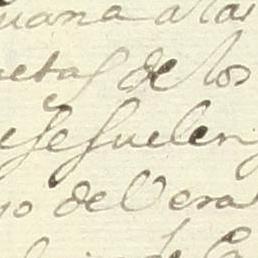 uana a las
etas de los
e se suelen
jo de Vera